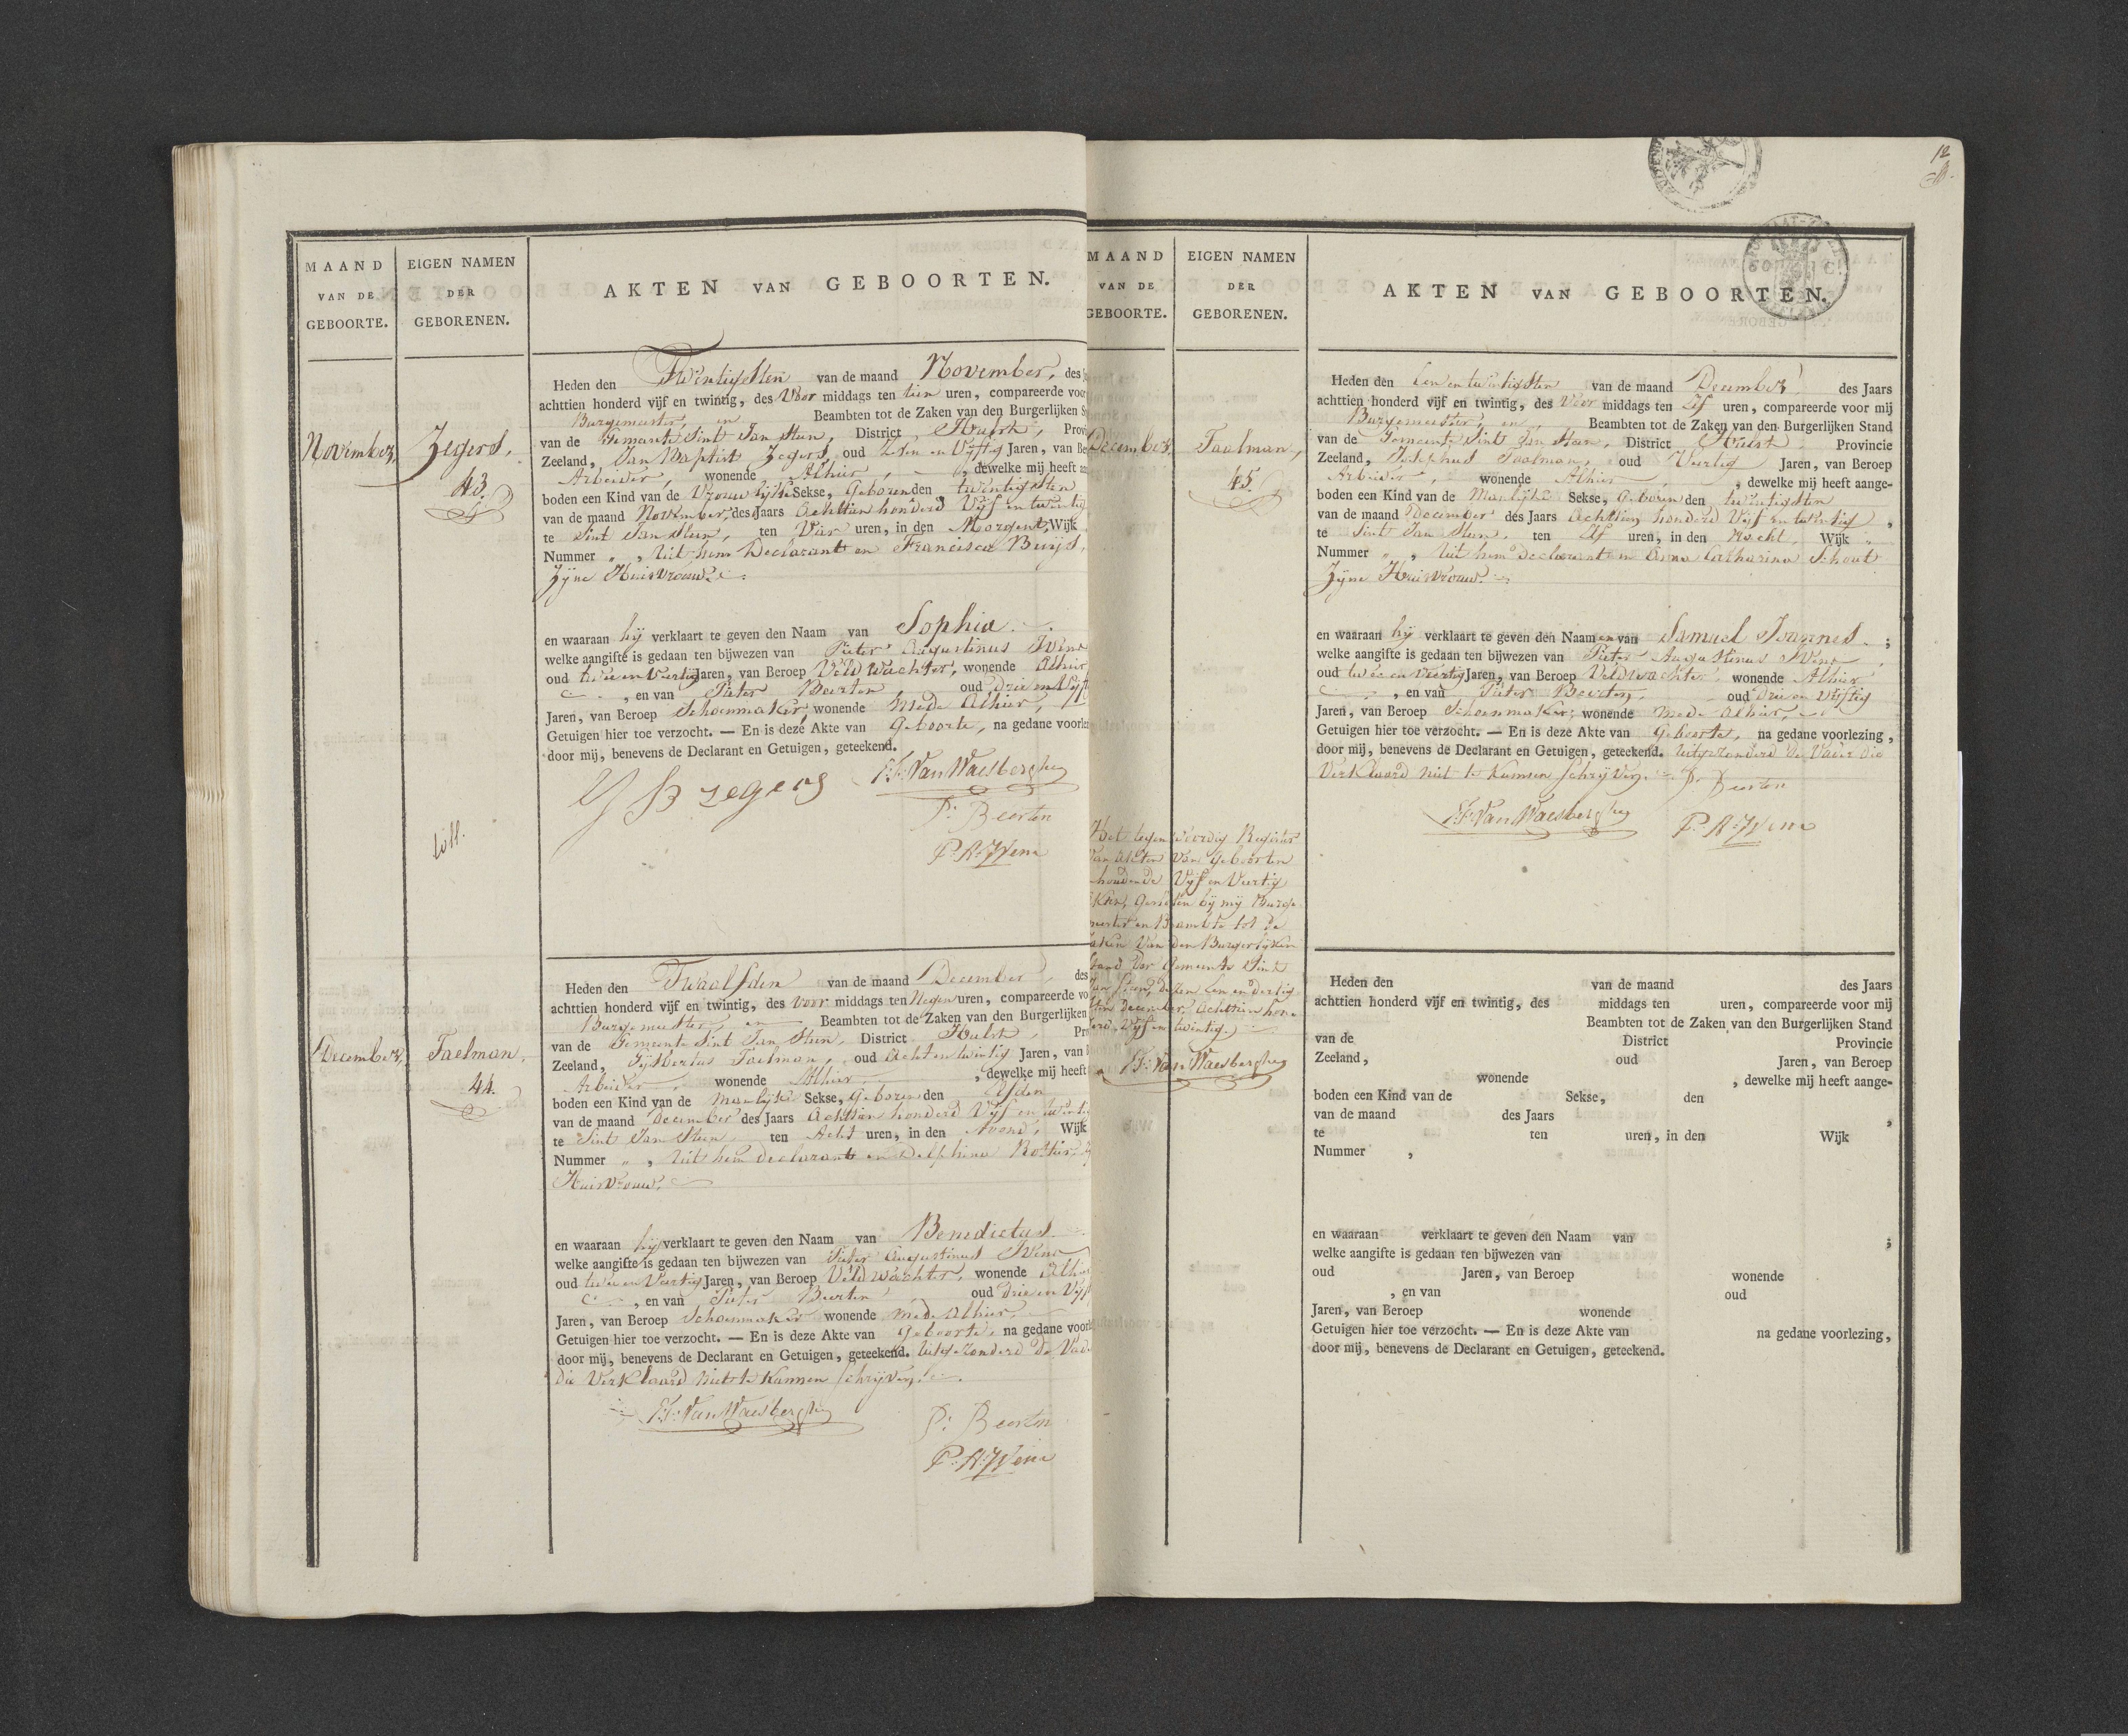 MAAND
VAN DE
GEBOORTE.
EIGEN NAMEN
DER
GEBORENEN.
AKTEN VAN GEBOORTEN.
November,
Zegers,
43.
Heden den Twintigsten van de maand November, des
achttien honderd vijf en twintig, des Voor middags ten tien uren, compareerde voor
Burgemeester, en Beambten tot de Zaken van den Burgerlijken
van de Gemeente Sint Jan Steen, District Hulst,
Zeeland, Jan Baptist Zegers, oud Zesen Vijftig Jaren, van
Arbeider, wonende Alhier, dewelke mij heeft
boden een Kind van de Vrouwlijke Sekse, Geboren den twintigsten
van de maand November, des Jaars Achttien honderd Vijf en twintig
te Sint Jan Steen, ten Vier uren, in den Morgent, Wijk
Nummer „ , Uit hem Declarant en Francisca Buijs,
Zijne Huisvrouw.
en waaraan hij verklaart te geven den Naam van Sophia.
welke aangifte is gedaan ten bijwezen van Pieter Augustinus Wene
oud twee en Veertig Jaren, van Beroep Veldwachter, wonende Alhier
, en van Pieter Beerten oud Drie en
Jaren, van Beroep Schoenmaker, wonende Mede Alhier,
Getuigen hier toe verzocht. — En is deze Akte van Geboorte, na gedane
door mij, benevens de Declarant en Getuigen, geteekend.
J B zegers F: Van Waesberghe
P: Beerten
P: A: Wene
December,
Taelman,
44.
Heden den Twaalfden van de maand December, des
achttien honderd vijf en twintig, des Voor middags ten Negen uren, compareerde
Burgemeester, en Beambten tot de Zaken van den Burgerlijken
van de Gemeente Sint Jan Steen, District Hulst,
Zeeland, Taelman, oud Acht en twintig Jaren, van
Arbeider, wonende Alhier, dewelke mij heeft
boden een Kind van de Manlijke Sekse, Geboren den Elfden
van de maand December des Jaars Achttien honderd Vijf en
te Sint Jan Steen ten Acht uren, in den Avond, Wijk
Nummer „ , Uit hem declarant en Delphina
Huisvrouw.
en waaraan hij verklaart te geven den Naam van Benedictus
welke aangifte is gedaan ten bijwezen van Pieter Augustinus Wene
oud twee en Veertig Jaren, van Beroep Veldwachter, wonende
, en van Pieter Beerten oud Drie en
Jaren, van Beroep Schoenmaker wonende mede Alhier,
Getuigen hier toe verzocht. — En is deze Akte van Geboorte, na gedane
door mij, benevens de Declarant en Getuigen, geteekend. uitgezonderd de
die Verklaard niet te Kunnen schrijven.
F: Van Waesberghe P: Beerten
P: A: Wene
12
MAAND
VAN DE
GEBOORTE.
EIGEN NAMEN
DER
GEBORENEN.
AKTEN VAN GEBOORTEN.
December
Taalman,
45.
Heden den Een en twintigsten van de maand December, des Jaars
achttien honderd vijf en twintig, des Voor middags ten Elf uren, compareerde voor mij
Burgemeester, en Beambten tot de Zaken van den Burgerlijken Stand
van de Gemeente Sint Jan Steen, District Hulst Provincie
Zeeland, Josephus Taalman, oud Veertig Jaren, van Beroep
Arbeider, wonende Alhier, dewelke mij heeft aange-
boden een Kind van de Manlijke Sekse, Geboren den twintigsten
van de maand December des Jaars Achttien honderd Vijf en twintig ,
te Sint Jan Steen, ten Elf uren, in den Nacht, Wijk „
Nummer „ , Uit hem declarant en Anna Catharina Schout
Zijne Huisvrouw.
en waaraan hij verklaart te geven den Naam en van Samuel Joannes. ;
welke aangifte is gedaan ten bijwezen van Pieter Augustinus Wene
oud twee en veertig Jaren, van Beroep Veldwachter wonende Alhier
, en van Pieter Beerten, oud Drie en vijftig
Jaren, van Beroep Schoenmaker; wonende mede Alhier,
Getuigen hier toe verzocht. — En is deze Akte van Geboorte, na gedane voorlezing,
door mij, benevens de Declarant en Getuigen, geteekend. uitgezonderd de Vader die
Verklaard niet te Kunnen schrijven. P. Beerten
F: Van Waesberghe P: A: Wene
Het tegenwoordig Register
van Akten van Geboorten
houdende Vijf en Veertig
Akten, Gesloten bij mij Burge
meester en Beambte tot de
zaken Van den Burgerlijken
Stand der Gemeente Sint
Jan Steen, dezen Een en dertig
sten December, Achttien hon=
derd Vijf en twintig.
F: Van Waesberghe
Heden den van de maand des Jaars
achttien honderd vijf en twintig, des middags ten uren, compareerde voor mij
Beambten tot de Zaken van den Burgerlijken Stand
van de District Provincie
Zeeland, oud Jaren, van Beroep
wonende , dewelke mij heeft aange-
boden een Kind van de Sekse, den
van de maand des Jaars ,
te ten uren, in den Wijk
Nummer ,
en waaraan verklaart te geven den Naam van ;
welke aangifte is gedaan ten bijwezen van
oud Jaren, van Beroep wonende
, en van oud
Jaren, van Beroep wonende
Getuigen hier toe verzocht. — En is deze Akte van na gedane voorlezing,
door mij, benevens de Declarant en Getuigen, geteekend.